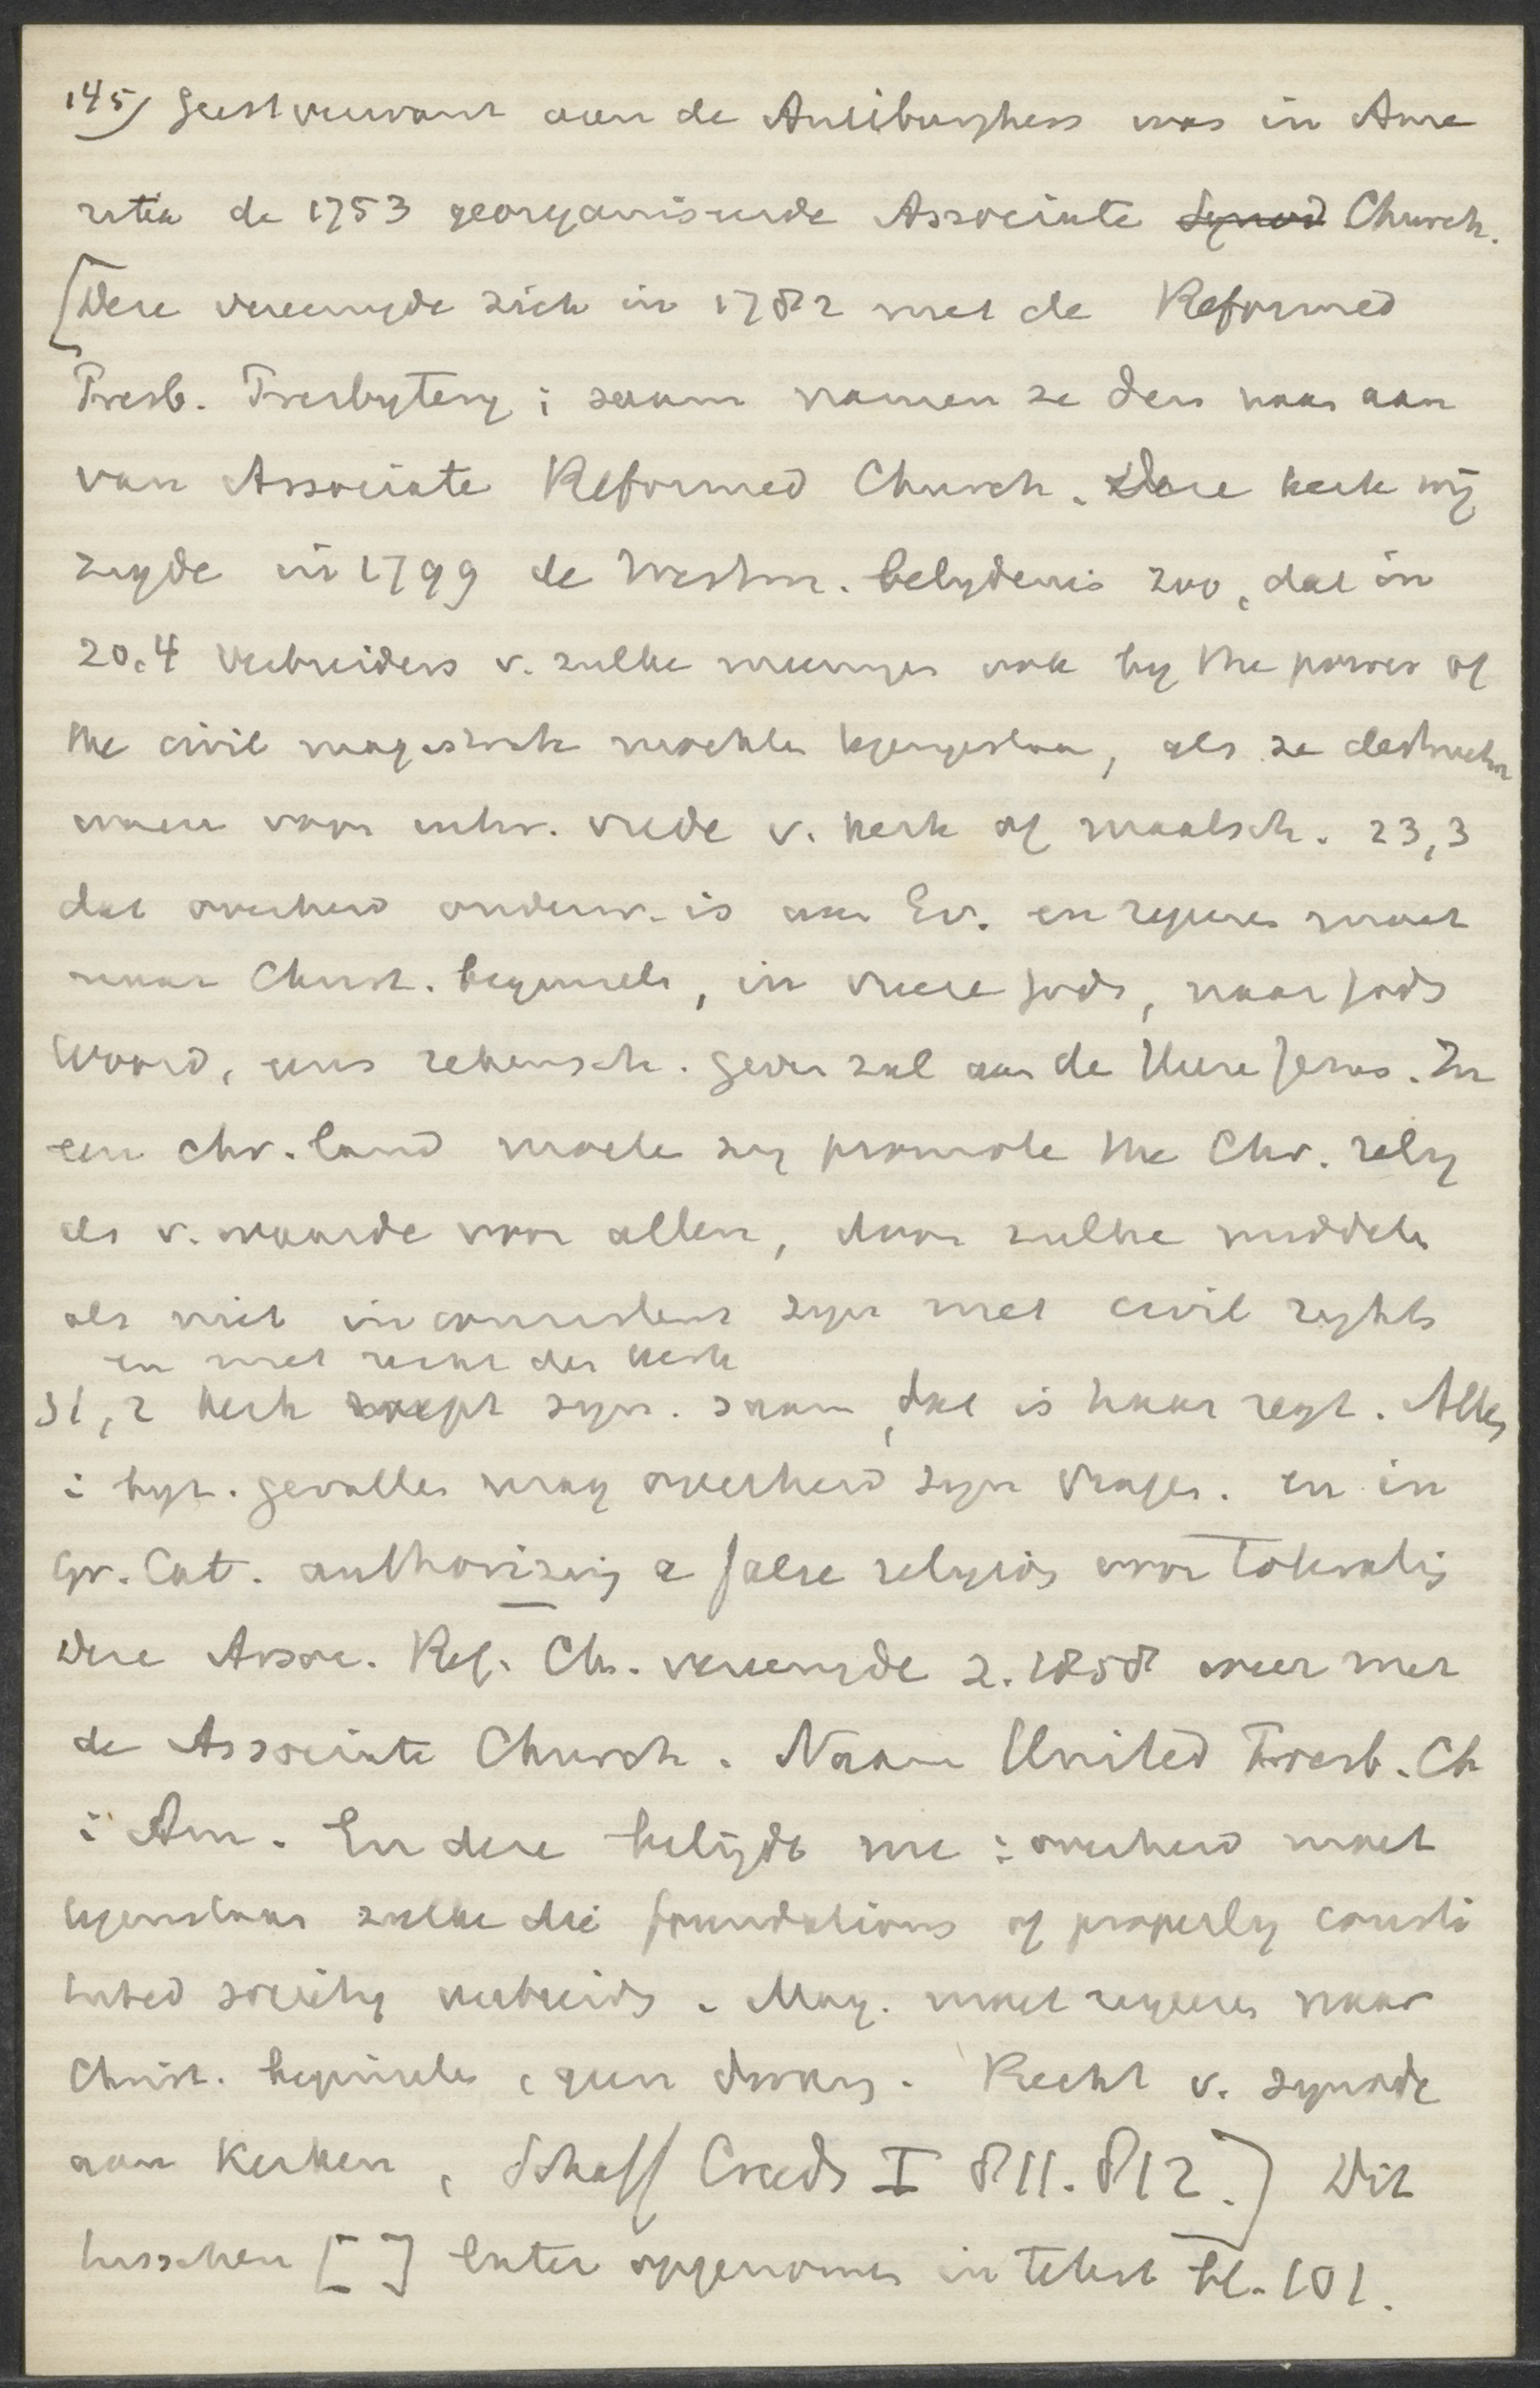 145) Geestverwant aan de Antiburghers was in Ame
rika de 1753 georganiseerde Associate Synod Church.
[Deze vereenigde zich in 1782 met de Reformed
Presb. Presbytery; saam namen ze den naam aan
van Associate Reformed Church. Deze kerk wij
zigde in 1799 de Westm. belydenis zoo, dat in
20,4 verbreiders v. zulke meeningen ook by the power of
the civil magistrate mochten tegengestaan, als ze destructive
waren voor uitw. vrede v. kerk of maatsch. 23,3
dat overheid onderw. is aan Ev. en regeeren moet
naar Christ. beginsels, in vreeze Gods, naar Gods
Woord, eens rekensch. geven zal aan de Heere Jezus. In
een chr. land moete zy promote the Chr. relig
als v. waarde voor allen, door zulke middelen
als niet inconsistent zyn met civil rights
en met recht der kerk
31,2 Kerk roept syn. saam, dat is haar regt. Alleen
i byz. gevallen mag overheid syn vragen. en in
Gr. Cat. authorizing a false religion voor tolerating
Deze Assoc. Ref. Ch. vereenigde z. 1858 weer met
de Associate Church. Naam United Presb. Ch
i Am. En deze belijdt nu: overheid moet
tegenstaan zulke die foundations of properly consti
tuted society verbreids. Mag. moet regeeren naar
Christ. beginsels, geen dwang. Recht v. synode
aan Kerken, Schaff Creeds I 811. 812.] Dit
tusschen [ ] later opgenomen in tekst bl. 101.